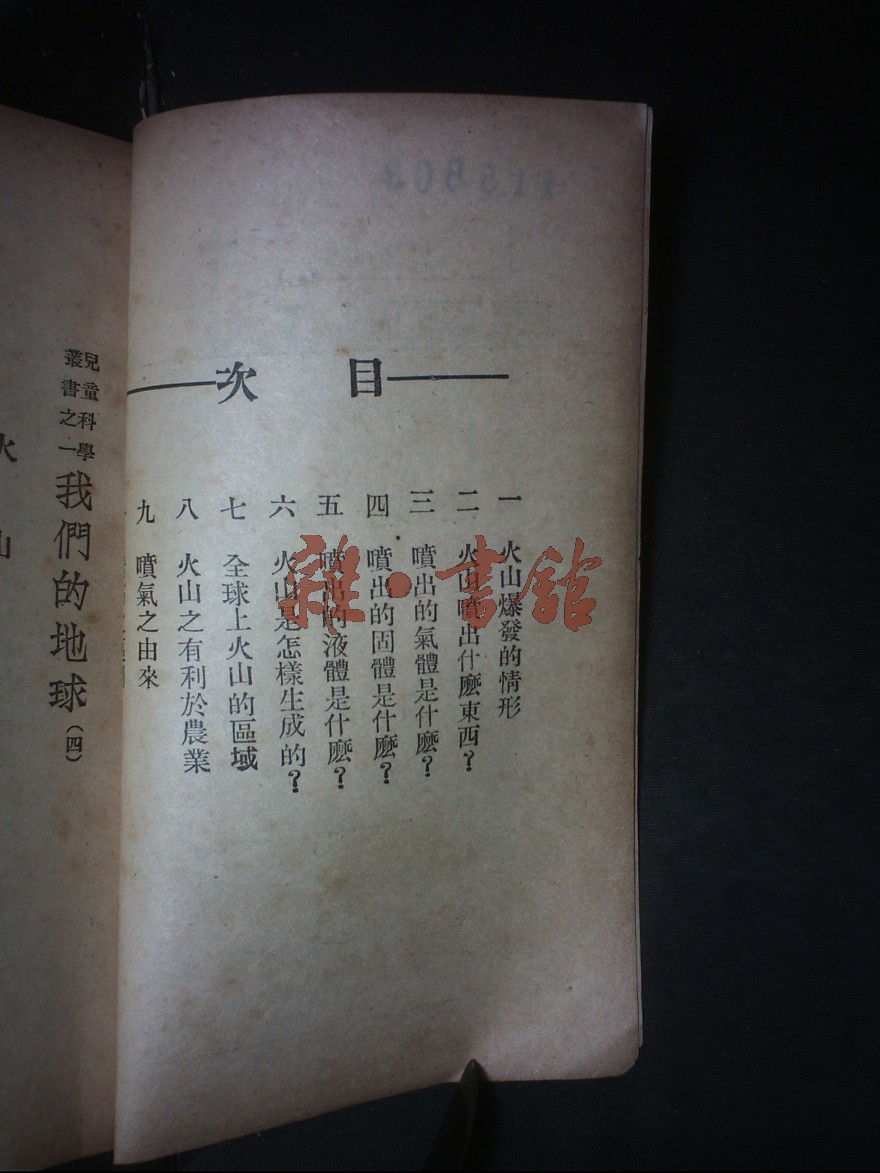 目 次
一 火山爆發的情形
二 火山噴出什麽東西?
三 噴出的氣體是什麽?
四 噴出的固體是什麽?
五 噴出的液體是什麽?
六 火山是怎樣生成的?
七 全球上火山的區域
八 火山之有利於農業
九 噴氣之由來
兒童科學
叢書之一
我們的地球(四)
火山
雜·書舘